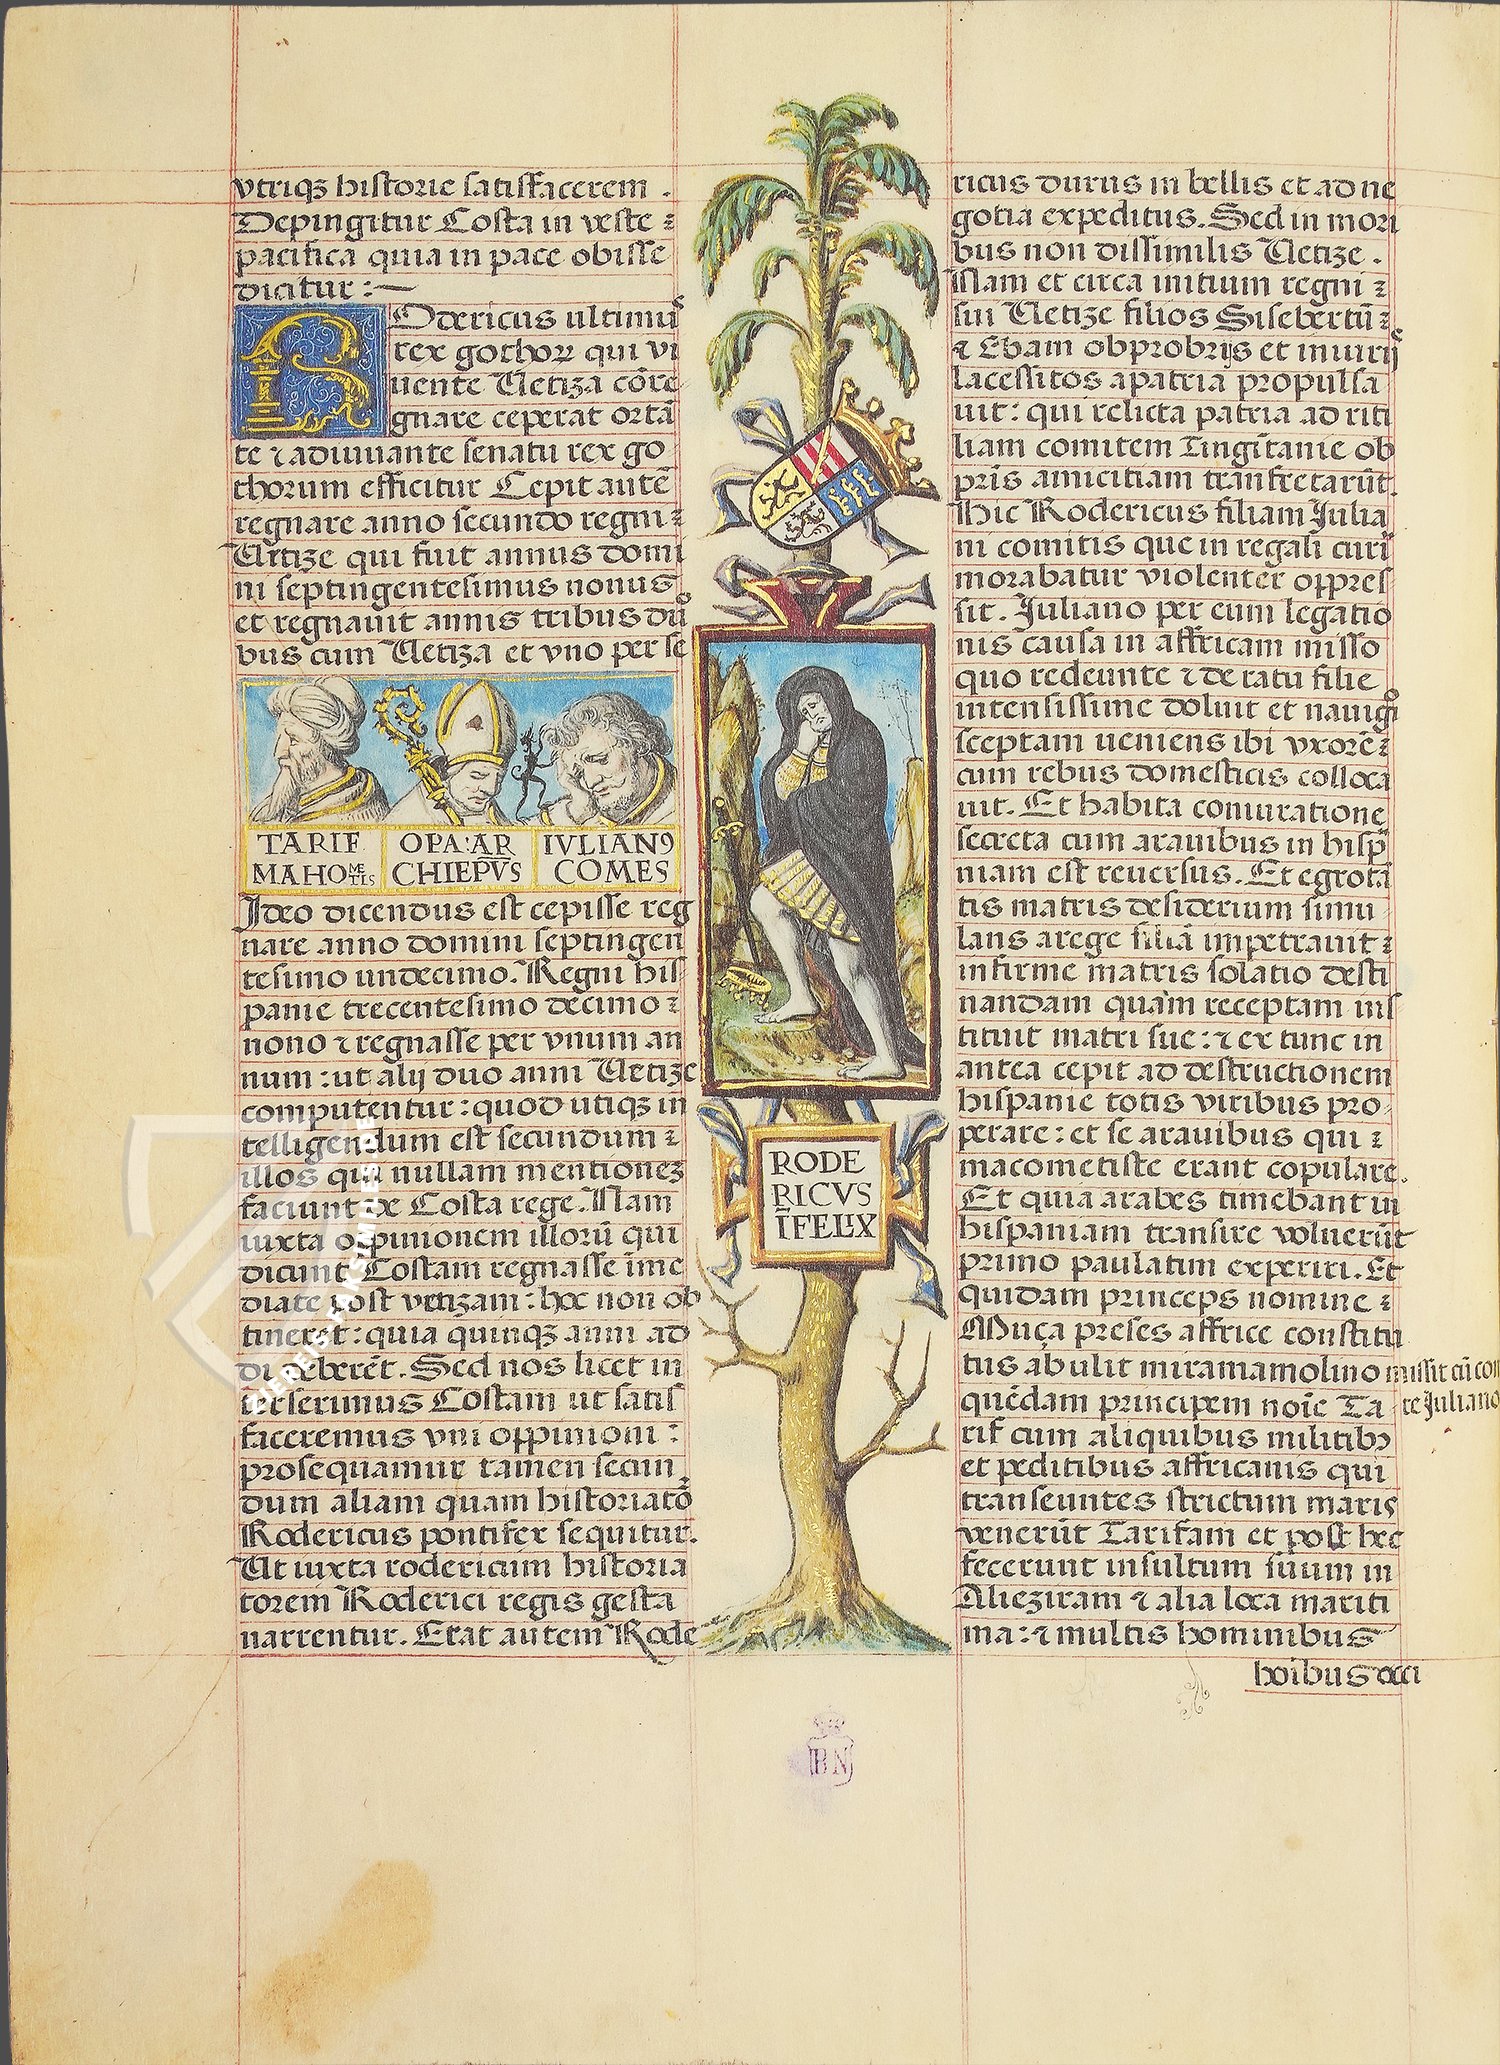 vtriqz historie satisfacerem .
Depingitur Costa in veste
pacifica quia in pace obisse
dicitur :—
ROdericus ultimus
rex gothorz qui vi
uente Uetiza cōre
gnare ceperat ortā
te ⁊ adiuuante senatu rex go
thorum efficitur Cepit autē
regnare anno secundo regni
Uetize qui fuit annus domi
ni septingentesimus nonus
et regnauit annis tribus du
bus cum Uetiza et vno per se
TARIF
MAHOMETIS
OPA:AR
CHIEPVS
IVLIANꝰ
COMES
Ideo dicendus est cepisse reg
nare anno domini septingen
tesimo undecimo. Regni his
panie trecentesimo decimo
nono ⁊ regnasse per vnum an
num : ut alij duo anni Uetize
computentur : quod utiqz in
telligendum est secundum
illos qui nullam mentionez
faciunt de Costa rege. Nam
iuxta oppinionem illorū qui
dicunt Costam regnasse īme
diate post vetizam : hoc non ob
tineret : quia quinqz anni ad
di deberēt. Sed nos licet in
terserimus Costam ut satis
faceremus vni oppinioni :
prosequamur tamen secun
dum aliam quam historiatō
Rodericus pontifex sequitur.
Ut iuxta rodericum historia
torem Roderici regis gesta
narrentur. Erat autem Rode
RODE
RICVS
ĪFELIX
ricus durus in bellis et ad ne
gotia expeditus. Sed in mori
bus non dissimilis Uetize .
Nam et circa initium regni
sui Uetize filios Sisebertū
⁊ Ebam obprobrijs et iniurij
lacessitos a patria propulsa
uit : qui relicta patria ad riti
liam comitem Tingitanie ob
pr̄is amicitiam tranfretarūt.
Hic Rodericus filiam Julia
ni comitis que in regali curi
morabatur violenter oppres
sit. Juliano per eum legatio
nis causa in affricam misso
quo redeunte ⁊ de ratu filie
intensissime doluit et nauigi
sceptam ueniens ibi vxorē
cum rebus domesticis colloca
uit. Et habita coniuratione
secreta cum arauibus in hisp
niam est reuersus. Et egrota
tis matris desiderium simu
lans a rege filiā impetrauit
infirme matris solatio desti
nandam quam receptam ins
tituit matri sue : ⁊ ex tunc in
antea cepit ad destructionem
hispanie totis viribus pro
perare : et se arauibus qui
macometiste erant copulare.
Et quia arabes timebant in
hispaniam transire voluerūt
primo paulatim experiri. Et
quidam princeps nomine
Muça preses affrice constitu
tus ab ulit miramamolino missit cū com
quēdam principem noīe Ta te Juliano
rif cum aliquibus militibꝰ
et peditibus affricanis qui
transeuntes strictum maris
venerūt Tarifam et post hec
fecerunt insultum suum in
Alieziram ⁊ alia loca mariti
ma : ⁊ multis hominibus
hoibus occi
BN